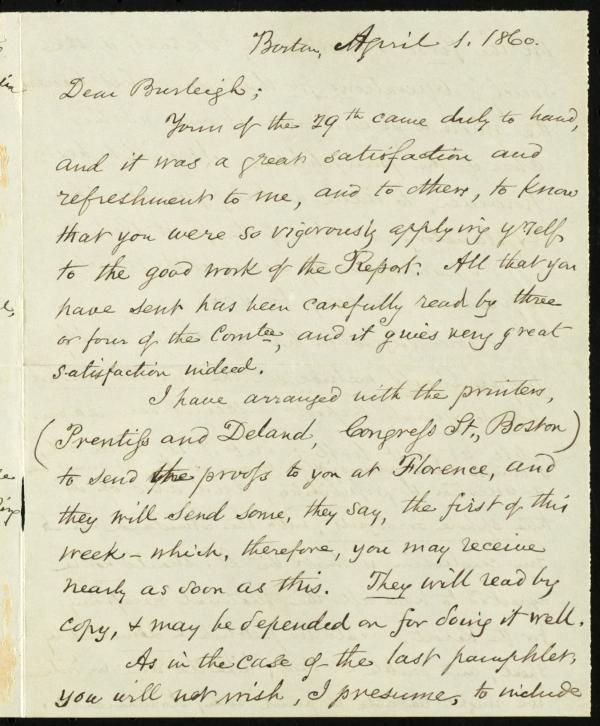 Boston, April 1. 1860.
Dear Burleigh;
Yours of the 29th came duly to hand,
and it was a great satisfaction and
refreshment to me, and to others, to know
that you were so vigorously applying yrself
to the good work of the Report. All that you
have sent has been carefully read by three
or four of the Comtee, and it gives very great
satisfaction indeed.
I have arranged with the printers,
(Prentiss and Deland, Congress St., Boston)
to send the proofs to you at Florence, and
they will send some, they say, the first of this
week – which, therefore, you may receive
nearly as soon as this. They will read by
copy, & may be depended on for doing it well.
As in the case of the last pamphlet,
you will not wish, I presume, to include